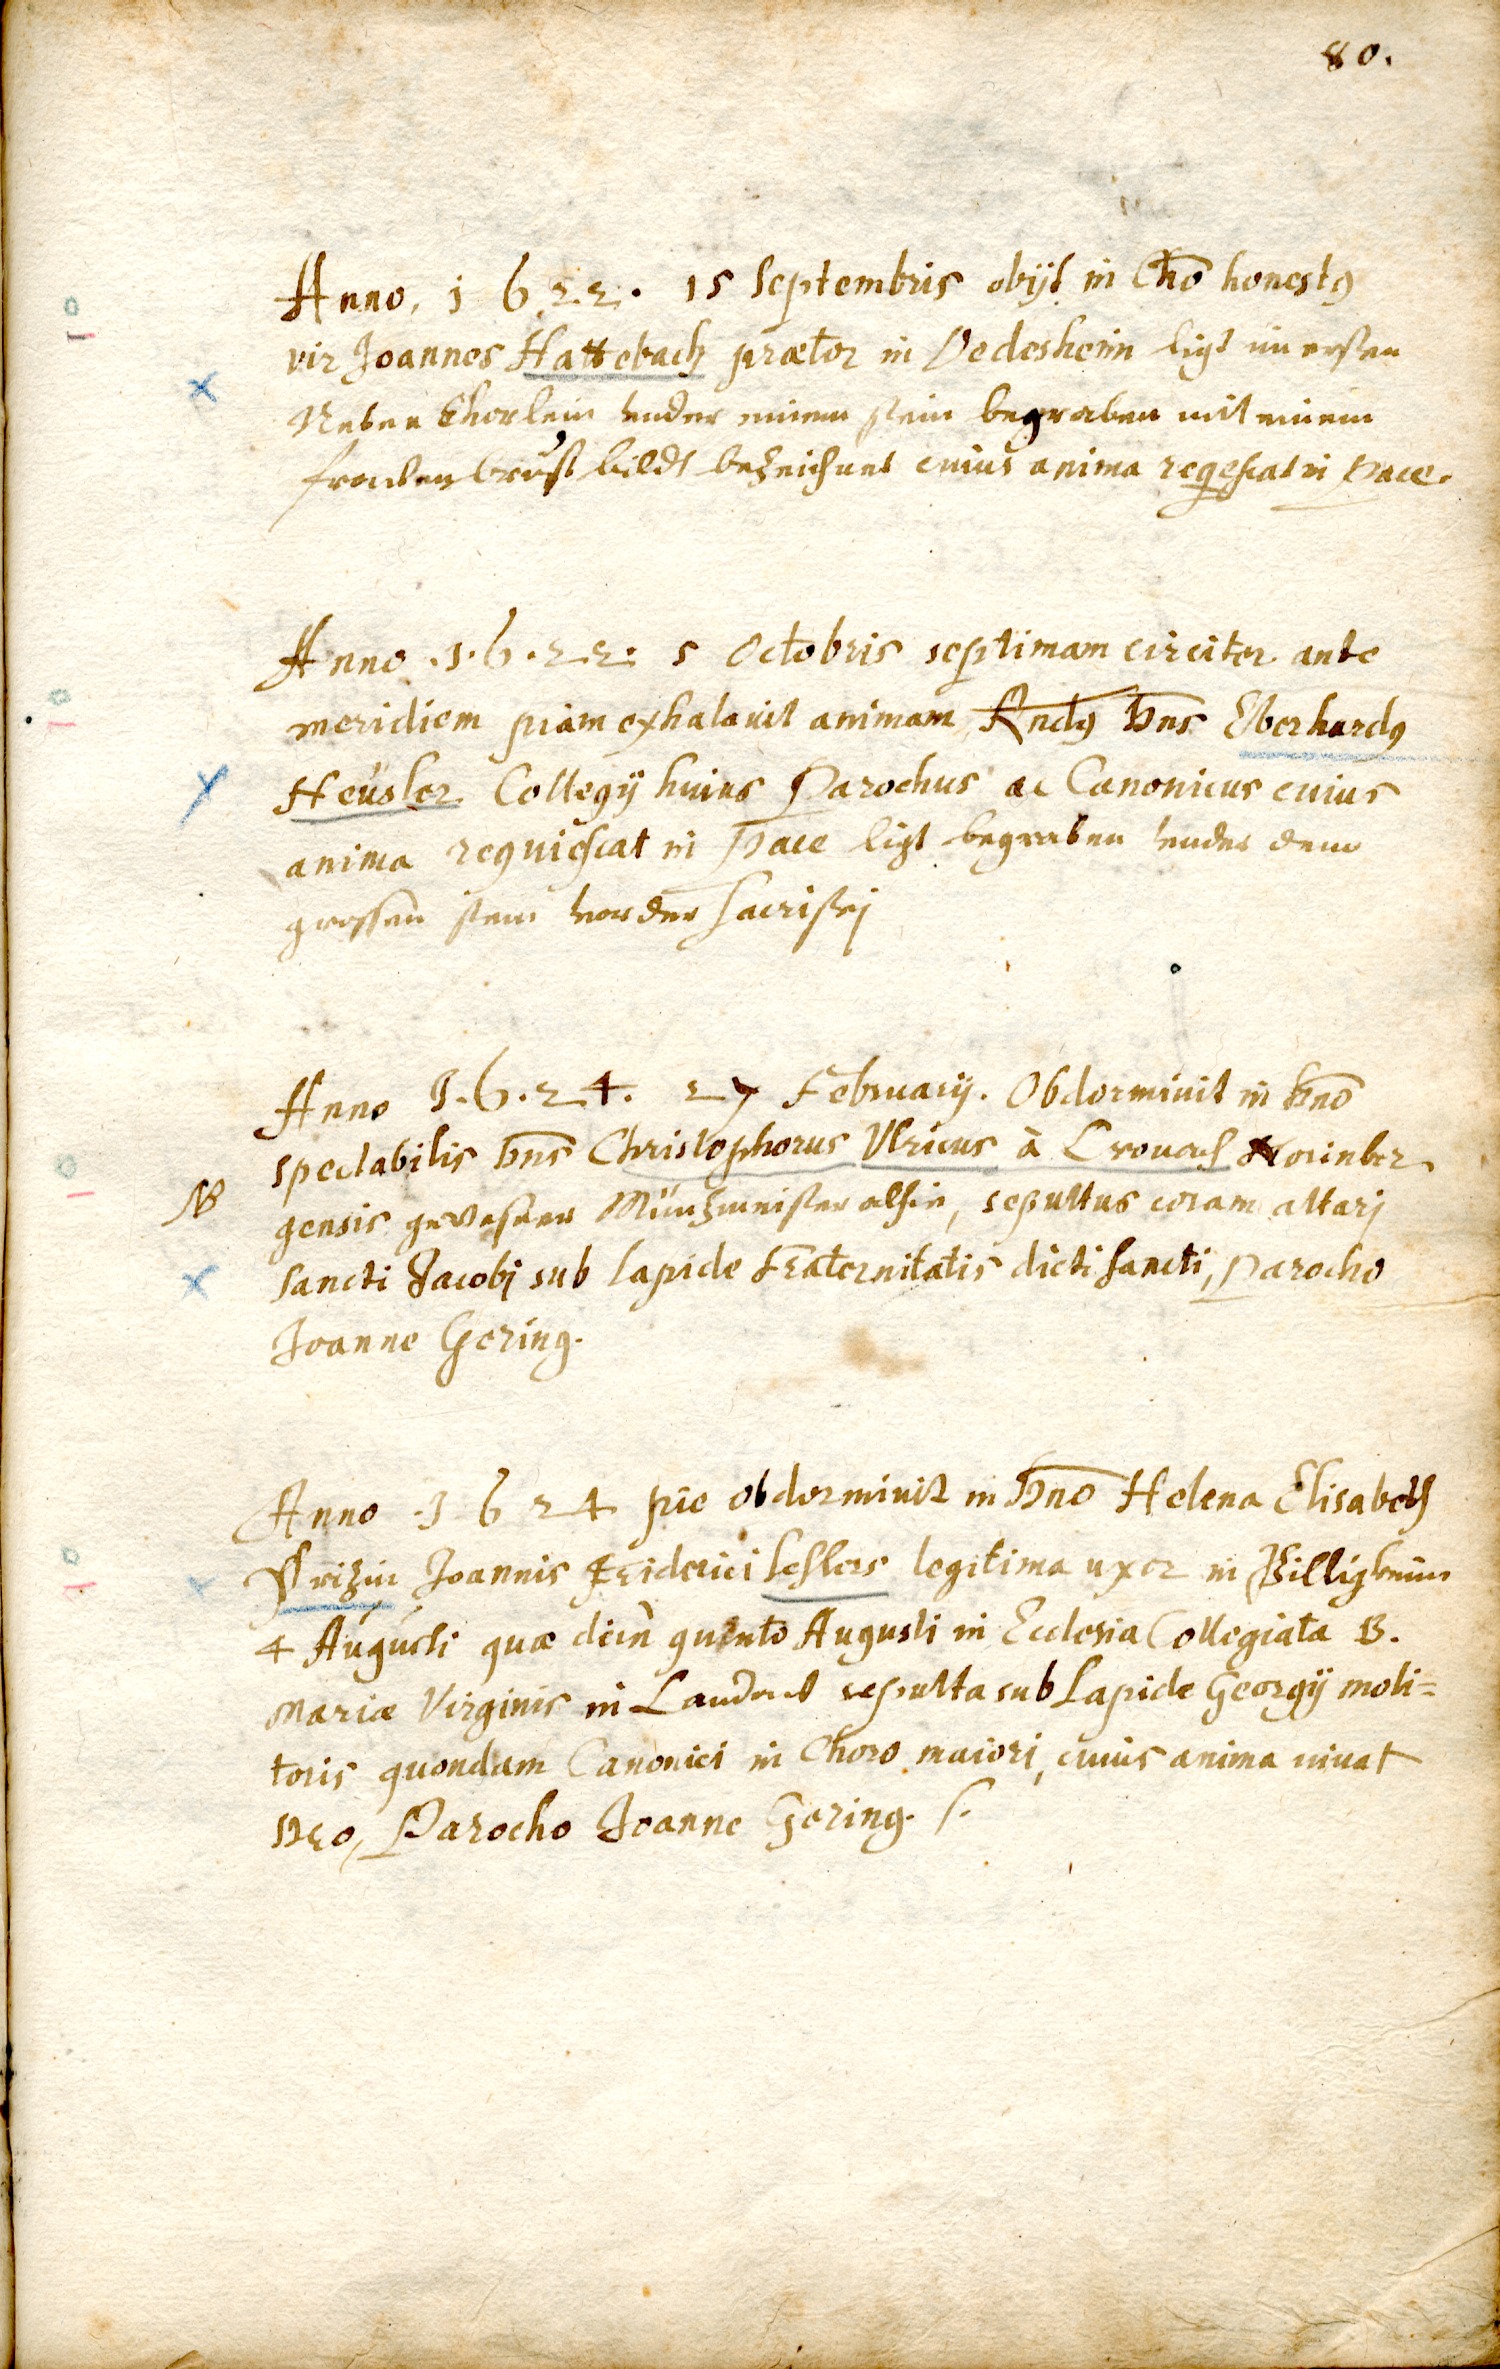 80.
Anno. 1622. 15 Septembris obijt in Chō honestꝰ
vir Joannes Hattebach prætor in Dedesheim ligt im ersten
Neben Chorlein vnder einem stein begraben mit einem
frawen brust bildt bezeichnet cuius anima reqescat in pace.
Anno .1.6.22. 5 Octobris septimam circiter ante
meridiem piam exhalauit animam Rndꝰ Dns Eberhardꝰ
Heüsler Collegij huius Parochus ac Canonicus cuius
anima requiescat in pace ligt begraben vnder dem
grossen stein vor der sacristej
Anno 1.6.24. 27 February. Obdormiuit in Dno
spectabilis Dns Christophorus Vlricus à Norinber
NB
gensis gewesener Müntzmeister alhie, sepultus coram altarj
sancti Jacobj sub lapide Fraternitatis dicti sancti, Parocho
Joanne Gering.
Anno .1624 pie obdormiuit in Dno Helena Elisabeth
Joannis Friderici leslers legitima uxor in Billigheim
4 Augusti quæ dein quinto Augusti in Ecclesia Collegiata B.
Mariæ Virginis in Landaut sepulta sub Lapide Georgij moli=
toris quondam Canonici in Choro maiori, cuius anima uiuat
Deo, Parocho Joanne Gering.